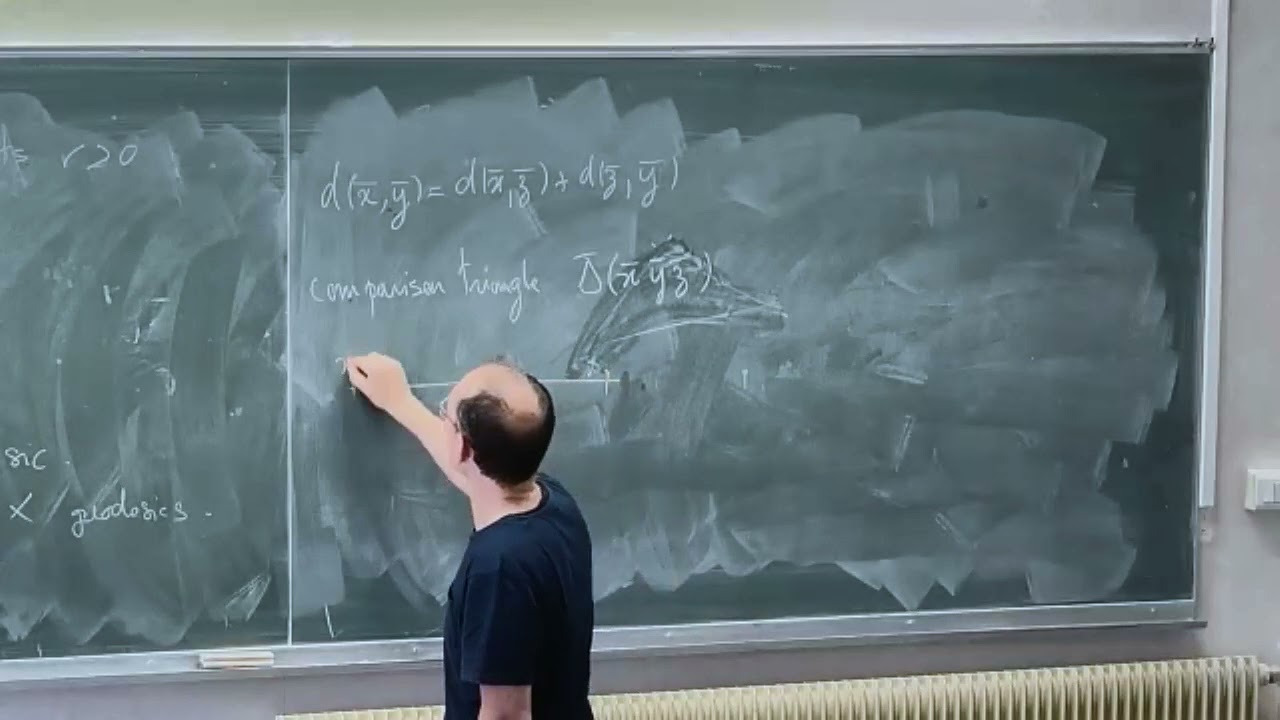 r>0
sic.
X geodesics.
d(x̄,ȳ) = d(x̄,z̄) + d(z̄,ȳ)
comparison triangle Δ̄(x̄ ȳ z̄)